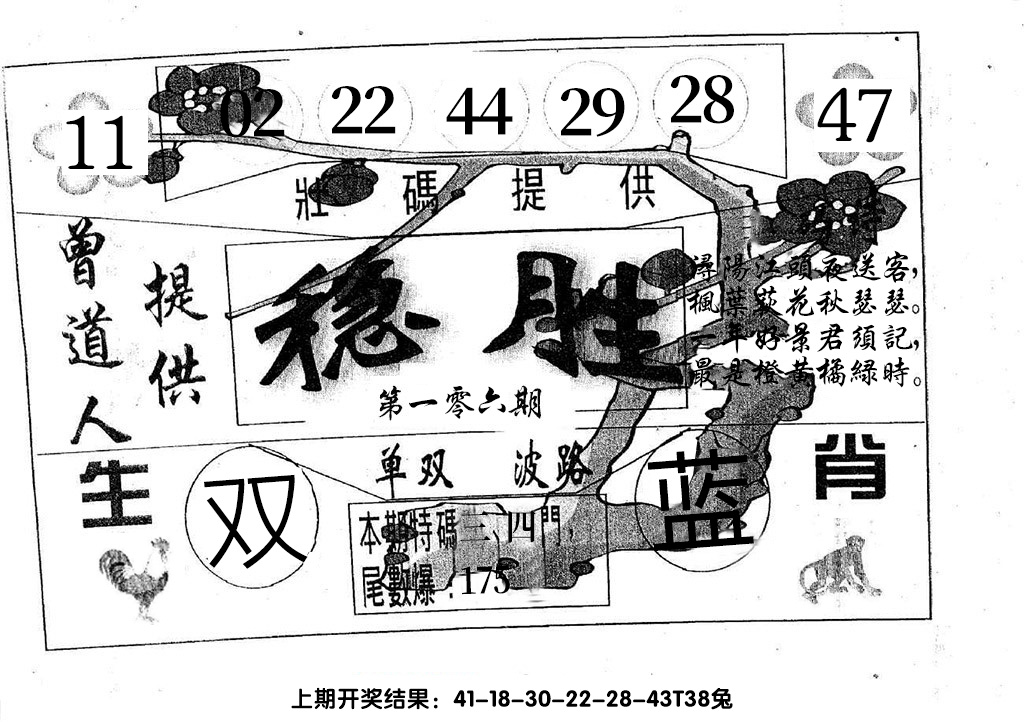 11 02 22 44 29 28 47
壯碼提供
曾道人
提供
稳胜
第一零六期
潯陽江頭夜送客，
楓葉荻花秋瑟瑟。
一年好景君須記，
最是橙黃橘綠時。
单双 波路
生 肖
双 蓝
本期特碼三、四門，
尾數爆：175
上期开奖结果：41-18-30-22-28-43T38兔